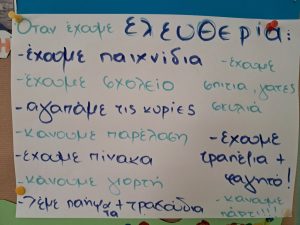 Όταν έχουμε ελευθερία:
-έχουμε παιχνίδια
-έχουμε σχολείο
-αγαπάμε τις κυρίες
-κάνουμε παρέλαση
-έχουμε πίνακα
-κάνουμε γιορτή
-λέμε ποιήματα + τραγούδια
-έχουμε
σπίτια, γάτες
σκυλιά
-έχουμε
τραπέζια +
φαγητό!
-κάνουμε
πάρτι!!!!